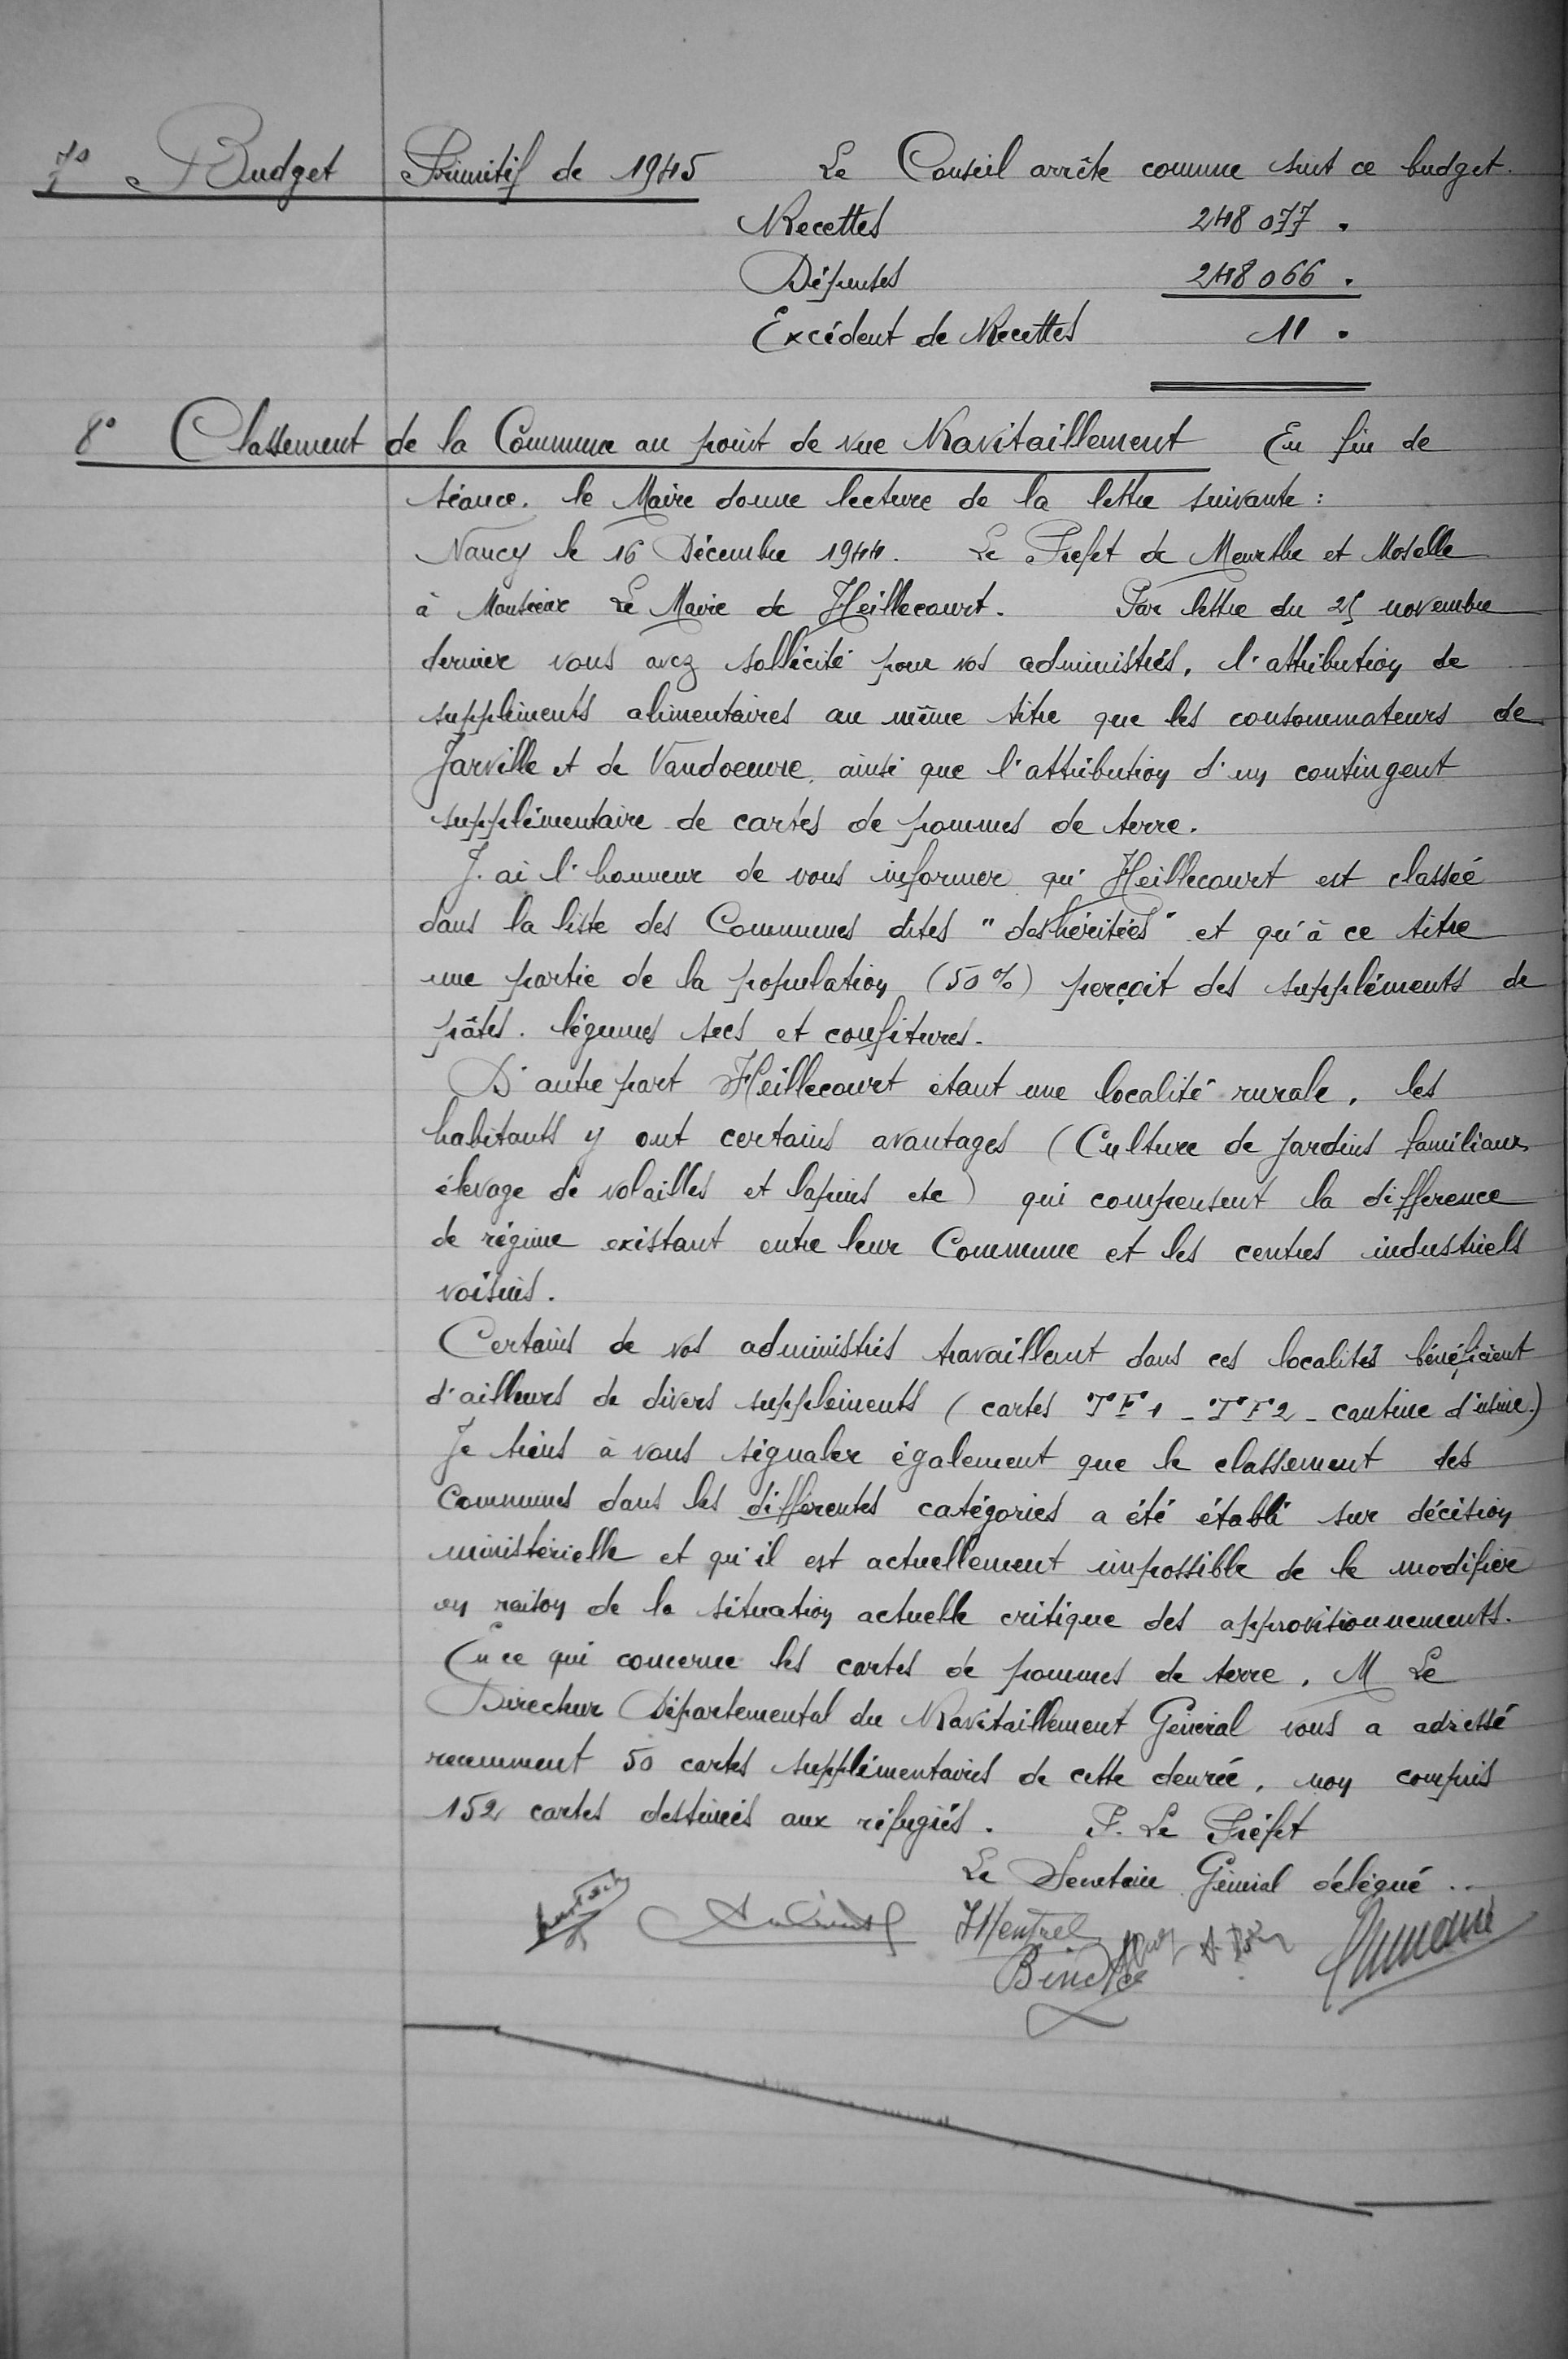 7° Budget Primitif de 1945 Le Conseil arrête comme suit ce budget.
Recettes 248 077 .
Dépenses 248 066 .
Excédent de Recettes 11 .
8° Classement de la Commune au point de vue Ravitaillement En fin de
séance, le Maire donne lecture de la lettre suivante :
Nancy le 16 Décembre 1944. Le Préfet de Meurthe et Moselle
à Monsieur Le Maire de Heillecourt. Par lettre du 25 novembre
dernier vous avez sollicité pour vos administrés, l'attribution de
suppléments alimentaires au même titre que les consommateurs de
Jarville et de Vandoeuvre, ainsi que l'attribution d'un contingent
supplémentaire de cartes de pommes de terre.
J'ai l'honneur de vous informer qu'Heillecourt est classée
dans la liste des Communes dites "deshéritées" et qu'à ce titre
une partie de la population (50%) perçoit des suppléments de
pâtes, légumes secs et confitures.
D'autre part Heillecourt étant une localité rurale, les
habitants y ont certains avantages (Culture de jardins familiaux
élevage de volailles et lapins etc) qui compensent la différence
de régime existant entre leur Commune et les centres industriels
voisins.
Certains de vos administrés travaillant dans ces localités bénéficient
d'ailleurs de divers suppléments (cartes TF1 - TF2 - cantine d'usine.)
Je tiens à vous signaler également que le classement des
Communes dans les différentes catégories a été établi sur décision
ministérielle et qu'il est actuellement impossible de le modifier
en raison de la situation actuelle critique des approvisionnements.
En ce qui concerne les cartes de pommes de terre, M Le
Directeur Départemental du Ravitaillement Général vous a adressé
recemment 50 cartes supplémentaires de cette denrée, non compris
152 cartes destinées aux réfugiés. P. Le Préfet
Le Secretaire Général délégué ..